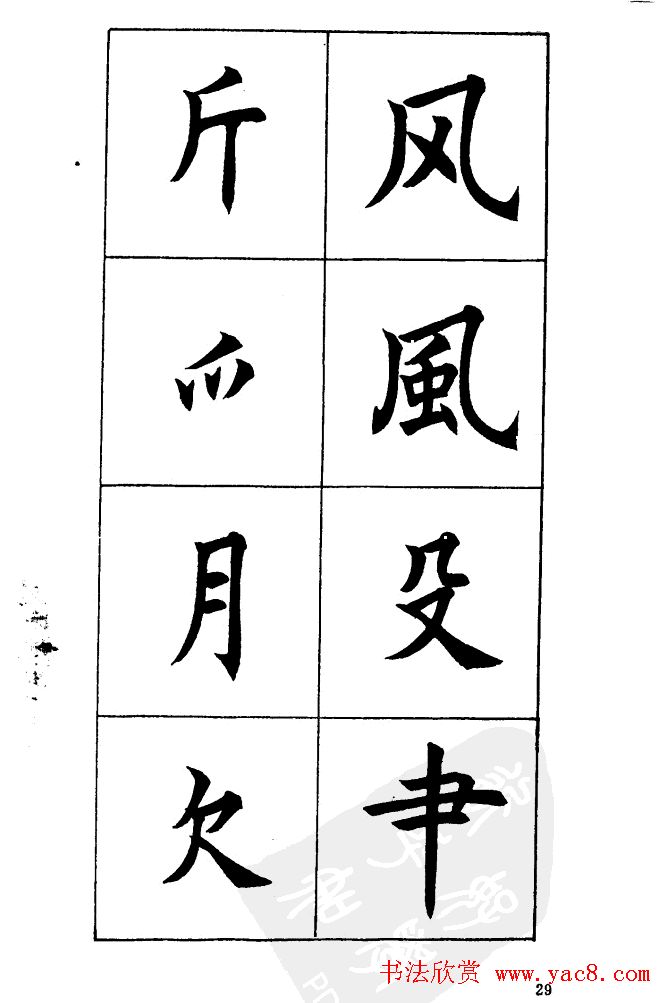 风風殳肀
斤爫月欠
书法欣赏 www.yac8.com
29